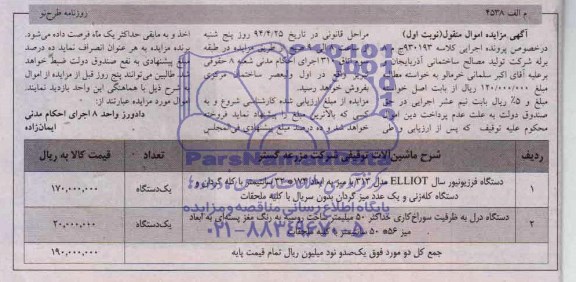 م الف ۴۵۳۸
روزنامه طرح‌نو
آگهی مزایده اموال منقول(نوبت اول)
درخصوص پرونده اجرایی کلاسه ۹۳۰۱۹۳ج
برله شرکت تولید مصالح ساختمانی آذربایجان
برعلیه آقای اکبر سلمانی خرمالو به خواسته مطالبه
مبلغ ۱۲۰/۰۰۰/۰۰۰ ریال از بابت اصل خواسته
و مبلغ ۵٪ ریال بابت نیم عشر اجرایی در حق
صندوق دولت به علت عدم پرداخت دین اموال
محکوم علیه توقیف که پس از ارزیابی و طی
مراحل قانونی در تاریخ ۹۴/۴/۲۵ روز پنج شنبه
از طریق مزایده در طبقه
اجرای احکام مدنی شعبه ۸ حقوقی
تبریز واقع در اول ولیعصر ساختمان مرکزی
بفروش خواهد رسید.
مزایده از مبلغ ارزیابی شده کارشناسی شروع و به
کسی که بالاترین مبلغ را پیشنهاد نماید فروخته
خواهد شد و ده درصد مبلغ پیشنهادی فی‌المجلس
اخذ و به مابقی حداکثر یک ماه فرصت داده می‌شود.
برنده مزایده به هر عنوان انصراف نماید ده درصد
مبلغ پیشنهادی به نفع صندوق دولت ضبط خواهد
شد. طالبین می‌توانند پنج روز قبل از مزایده از اموال
به شرح ذیل با هماهنگی این واحد بازدید نمایند.
اموال مورد مزایده عبارتند از:
دادورز واحد ۸ اجرای احکام مدنی
ایمان‌زاده
ردیف	شرح ماشین‌آلات توقیفی شرکت مزرعه گستر	تعداد	قیمت کالا به ریال
۱	دستگاه فرزیونیور سال ELLIOT مدل ۳۱۳ با میز به ابعاد ۱۷۴ سانتیمتر با کله گردان و	یک‌دستگاه	۱۷۰,۰۰۰,۰۰۰
دستگاه کله‌زنی و یک عدد میز گردان بدون سریال با کلیه ملحقات
۲	دستگاه درل به ظرفیت سوراخ‌کاری حداکثر ۵۰ میلیمتر ساخت روسیه به رنگ مغز پسته‌ای به ابعاد	یک‌دستگاه	۲۰,۰۰۰,۰۰۰
میز ۵۶* ۵۰ سانتیمتر با کلیه ملحقات
جمع کل دو مورد فوق یک‌صدو نود میلیون ریال تمام قیمت پایه	۱۹۰,۰۰۰,۰۰۰
ParsNamadData
پایگاه اطلاع رسانی مناقصه و مزایده
۰۲۱-۸۸۳۴۹۶۷۰-۵